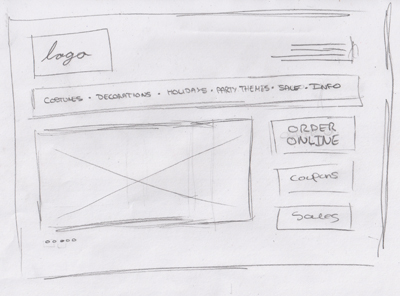 logo
COSTUMES • DECORATIONS • HOLIDAYS • PARTY THEMES • SALE • INFO
ORDER
ONLINE
Coupons
Sales